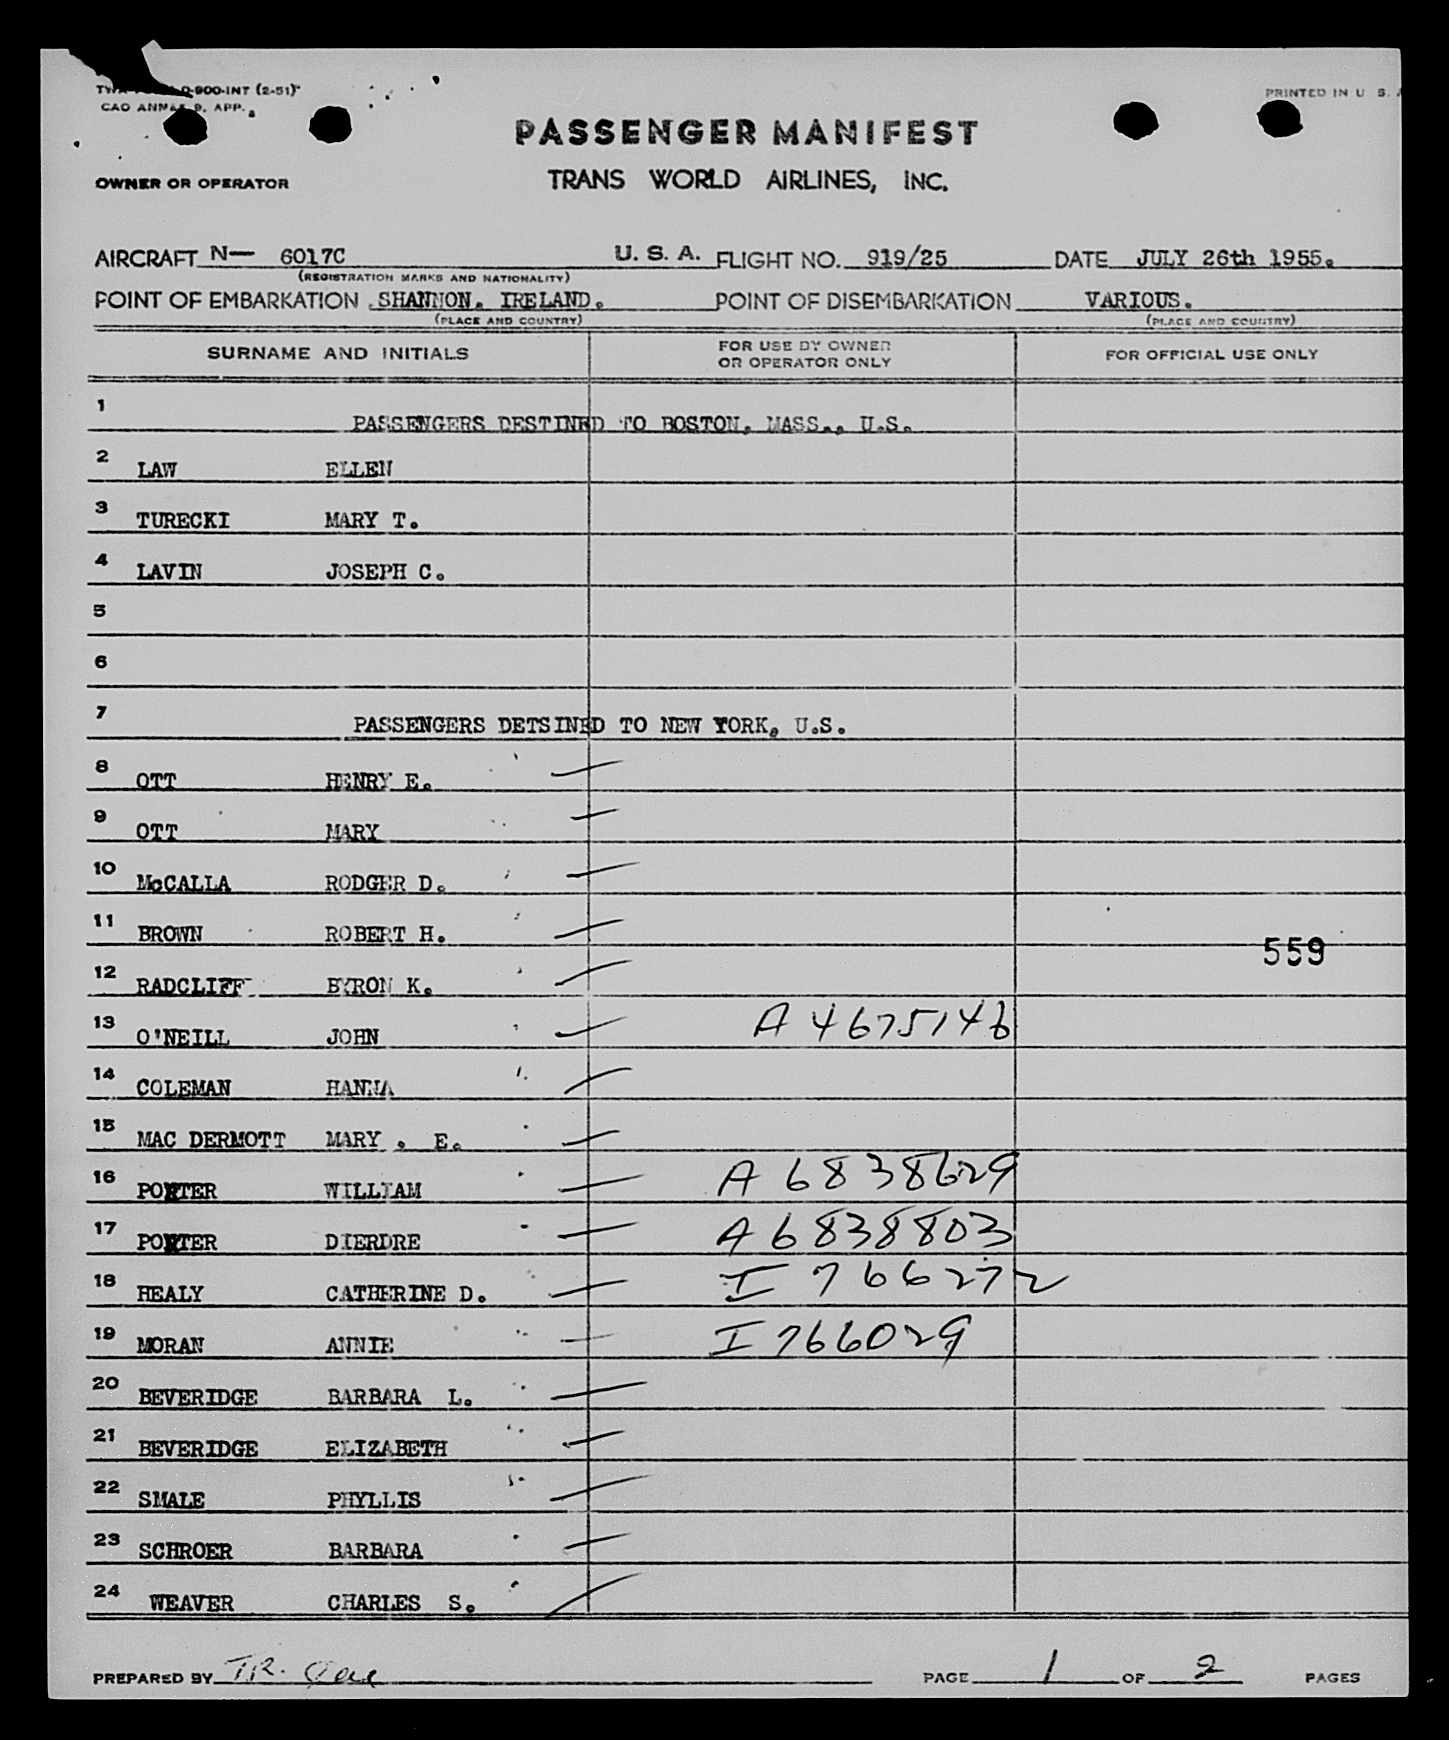 0-900-INT (2-51)
PRINTED IN U. S.
CAO ANNEX 9, APP.
PASSENGER MANIFEST
OWNER OR OPERATOR
TRANS WORLD AIRLINES, INC.
AIRCRAFT N— 6017C U. S. A. FLIGHT NO. 919/25 DATE JULY 26th 1955.
(REGISTRATION MARKS AND NATIONALITY)
POINT OF EMBARKATION SHANNON. IRELAND. POINT OF DISEMBARKATION VARIOUS.
(PLACE AND COUNTRY) (PLACE AND COUNTRY)
SURNAME AND INITIALS FOR USE BY OWNER OR OPERATOR ONLY FOR OFFICIAL USE ONLY
1 PASSENGERS DESTINED TO BOSTON, MASS., U.S.
2 LAW ELLEN
3 TURECKI MARY T.
4 LAVIN JOSEPH C.
5
6
7 PASSENGERS DETSINED TO NEW YORK, U.S.
8 OTT HENRY E.
9 OTT MARY
10 McCALLA RODGER D.
11 BROWN ROBERT H.
559
12 RADCLIFF BYRON K.
13 O'NEILL JOHN A 4675146
14 COLEMAN HANNA
15 MAC DERMOTT MARY . E.
16 PORTER WILLIAM A 6838629
17 PORTER DIERDRE A 6838803
18 HEALY CATHERINE D. I 766272
19 MORAN ANNIE I 766029
20 BEVERIDGE BARBARA L.
21 BEVERIDGE ELIZABETH
22 SMALE PHYLLIS
23 SCHROER BARBARA
24 WEAVER CHARLES S.
PREPARED BY T.R. PAGE 1 OF 2 PAGES